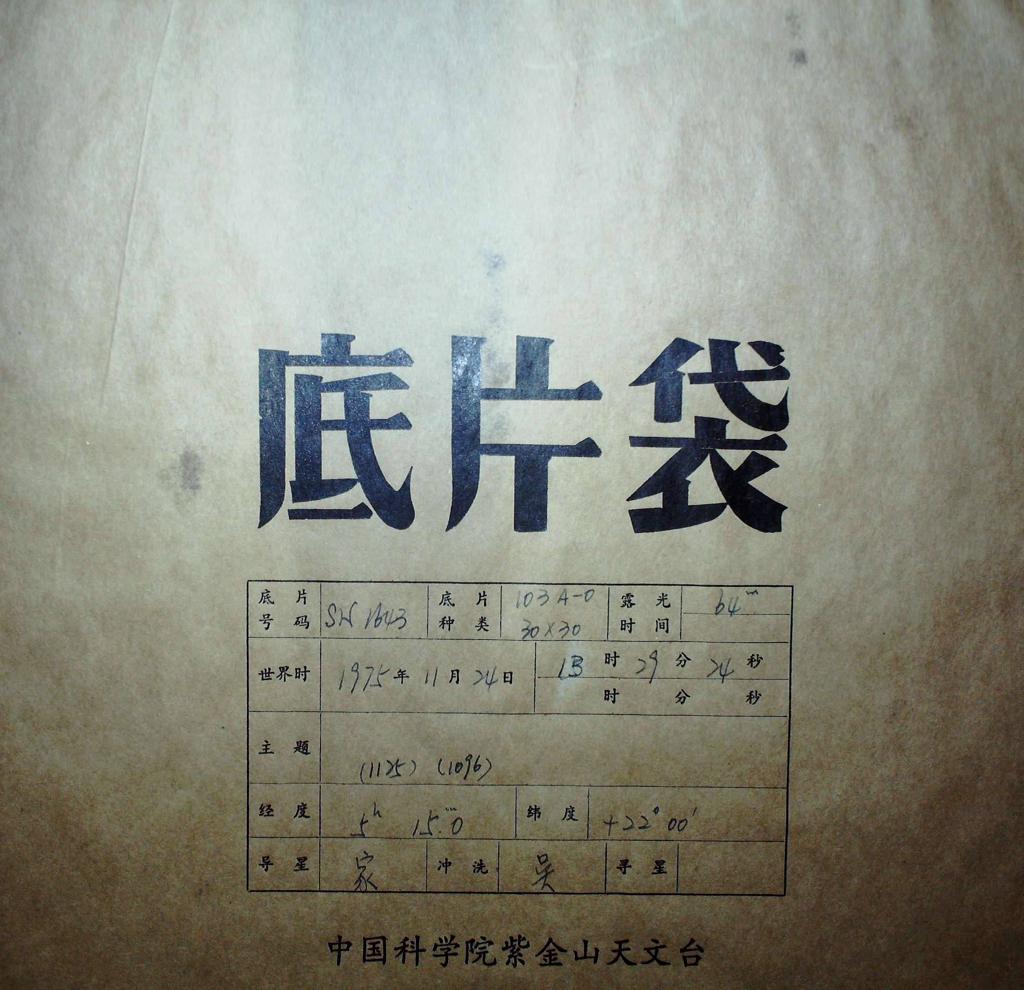 底片袋
底片号码 SN 1643 底片种类 103A-0 30×30 露光时间 64ᵐ
世界时 1975年11月24日 13时29分24秒
时 分 秒
主题 (1125) (1096)
经度 5ʰ 15.ᵐ0 纬度 +22°00′
导星 家 冲洗 吴 寻星
中国科学院紫金山天文台